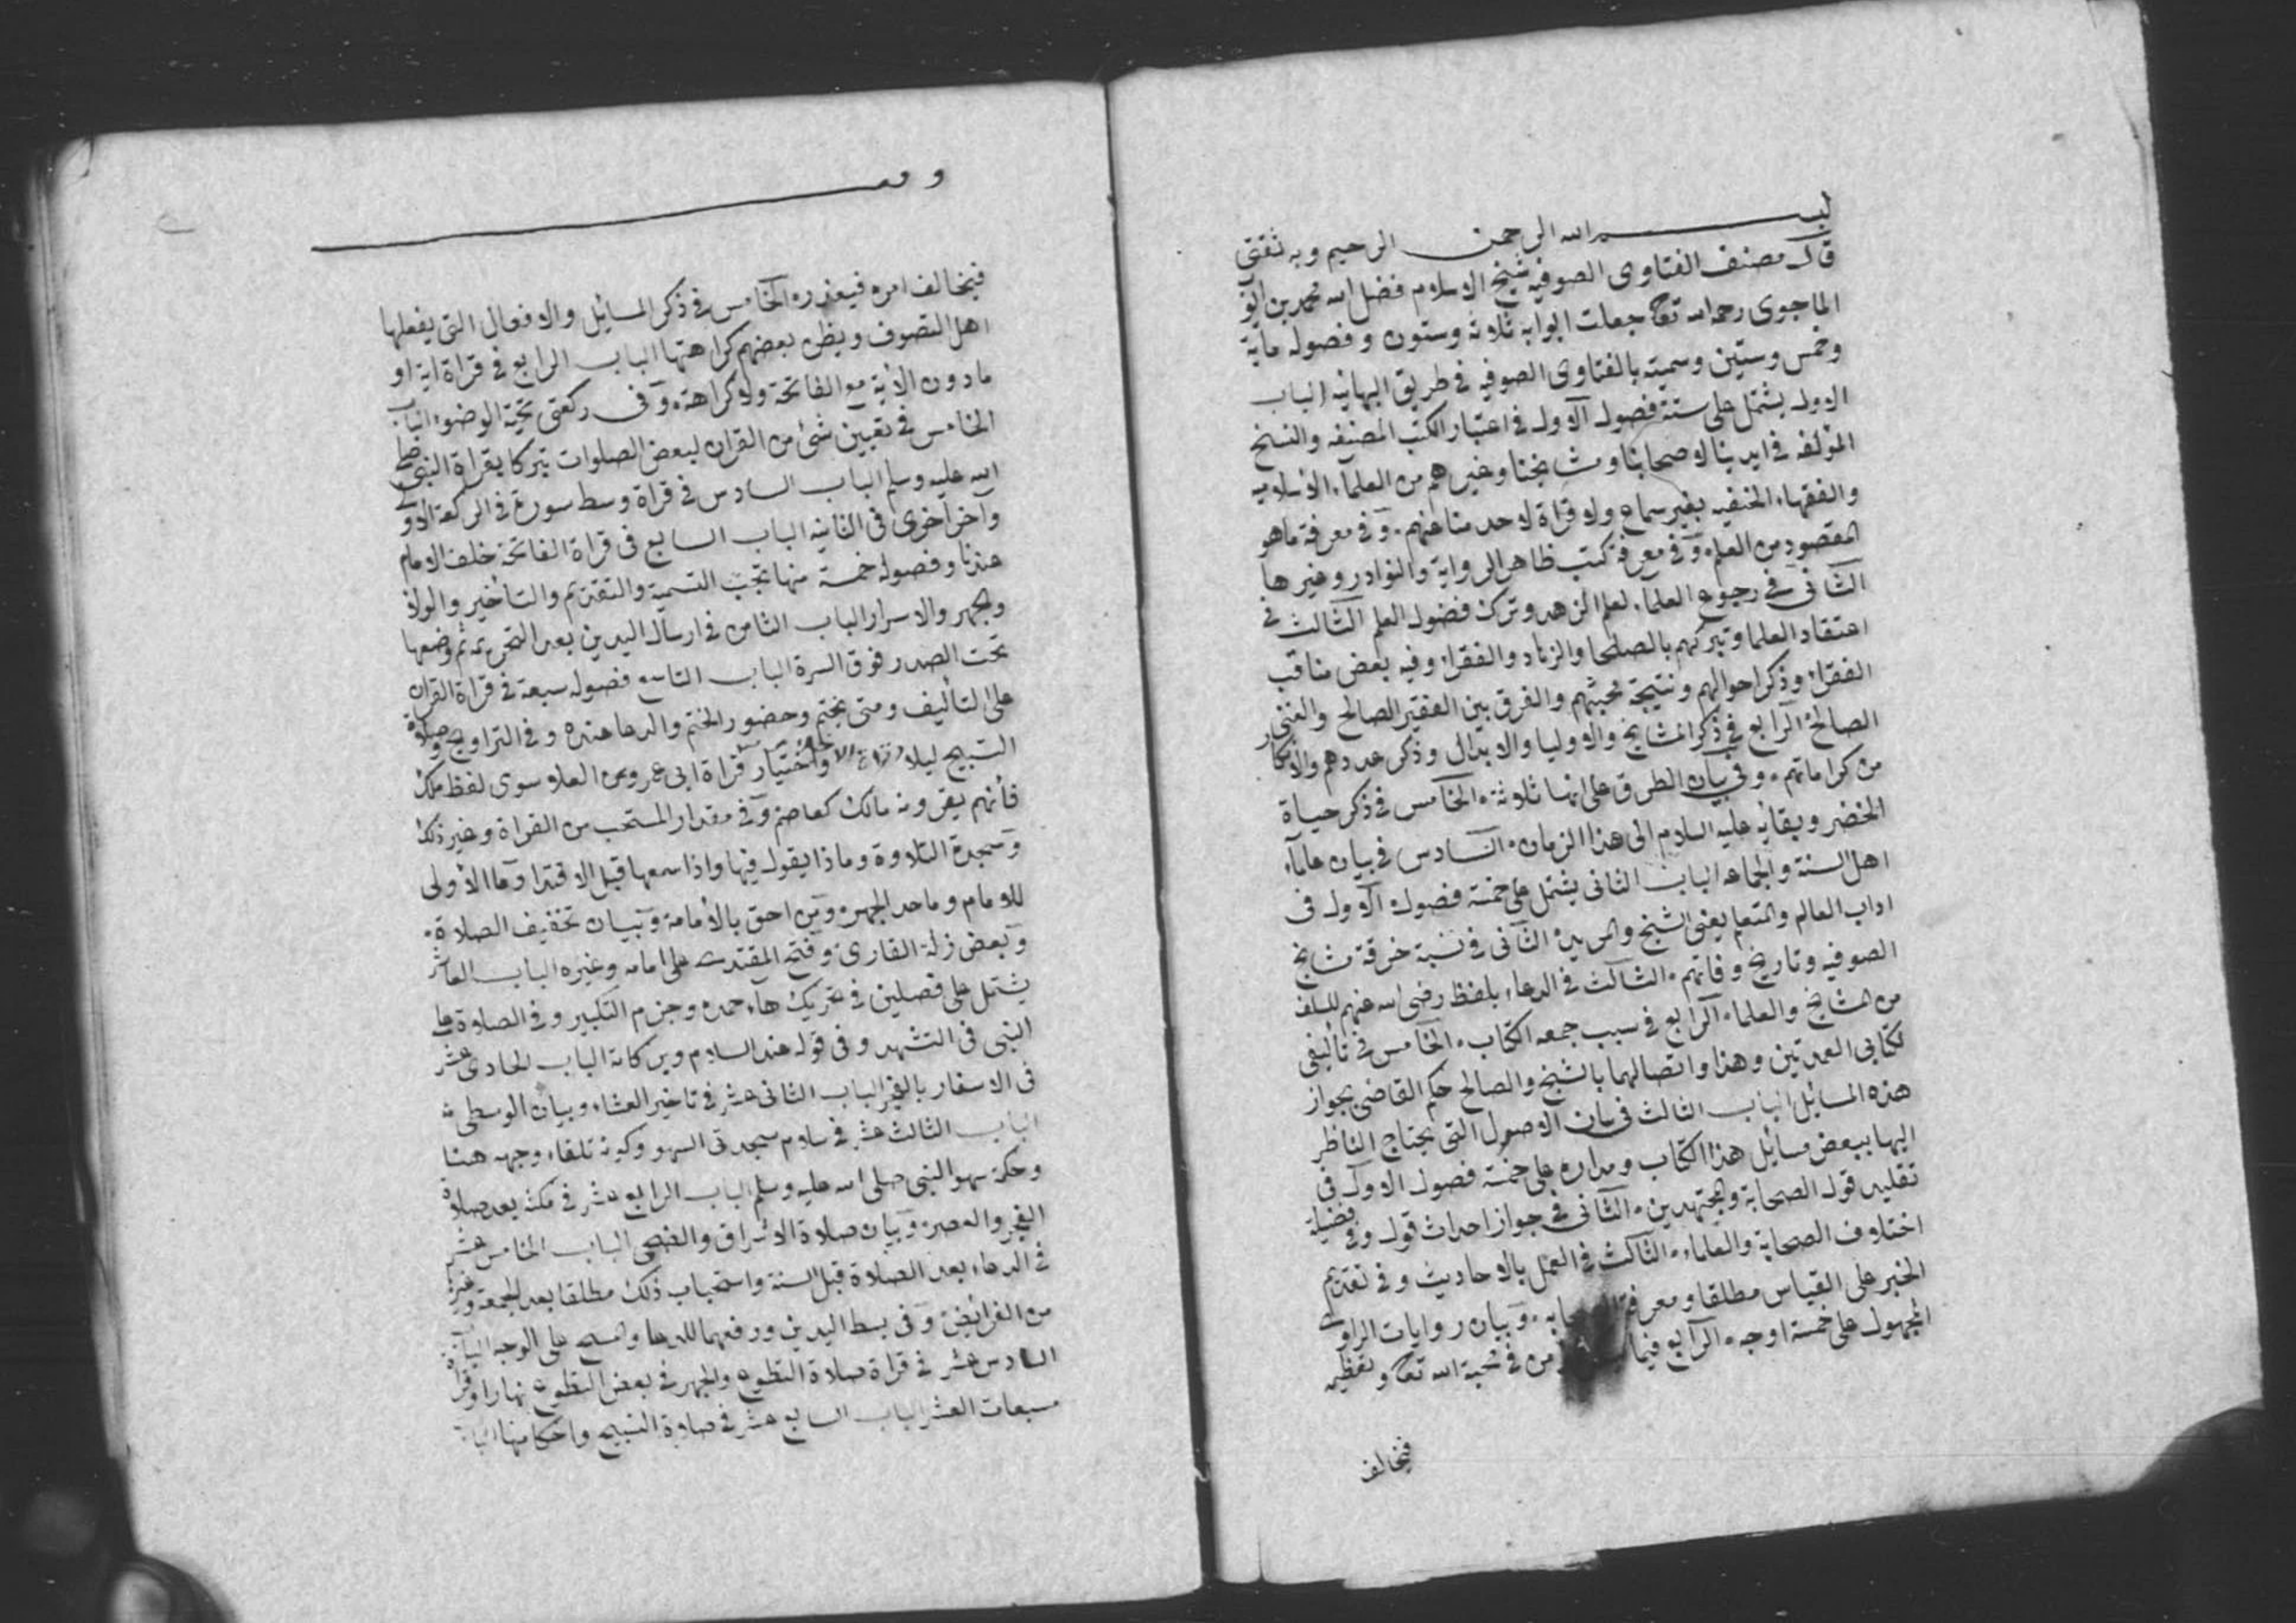 بسم الله الرحمن الرحيم وبه ثقتي
قال مصنف الفتاوى الصوفيه شيخ الاسلام فضل الله محمد بن ايوب
الماجوى رحمه الله تعا جعلت ابوابه ثلاثة وستون وفصوله ماية
وخمس وستين وسميته بالفتاوى الصوفيه في طريق البهائيه الباب
الاول يشتمل على ستة فصول الاول في اعتبار الكتب المصنفه والنسخ
المؤلفه في ايدينا لاصحابنا ومشايخنا وغيرهم من العلماء الاسلاميه
والفقهاء الحنفيه بغير سماع ولا قراة لاحد منا عنهم. وفي معرفة ماهو
المقصود من العلم. وفي معرفة كتب ظاهر الرواية والنوادر وغيرها
الثانى في رجوع العلماء لعلم الزهد وترك فضول العلم الثالث في
اعتقاد العلما وتبركهم بالصلحا والزهاد والفقراء وفيه بعض مناقب
الفقراء وذكر احوالهم ونتيجة محبتهم والفرق بين الفقير الصالح والغنى
الصالح الرابع في ذكر المشايخ والاوليا والابدال وذكر عددهم والانكار
من كراماتهم. وفي بيان الطرق على انها ثلاثة. الخامس في ذكر حياة
الخضر وبقائه عليه السلام الى هذا الزمان. السادس في بيان علماء
اهل السنة والجماعه الباب الثانى يشتمل على خمسة فصول الاول في
اداب العالم والمتعلم يعنى الشيخ والمريد. الثانى في نسبة خرقة مشايخ
الصوفيه وتاريخ وفاتهم. الثالث في الدعاء بلفظ رضى الله عنهم للسلف
من المشايخ والعلماء الرابع في سبب جمعه الكتاب. الخامس في تاليفى
لكتابى العمدتين وهذا واتصالهما بالشيخ والصالح حكم القاضى بجواز
هذه المسايل الباب الثالث في بيان الاصول التى يحتاج الناظر
اليها ببعض مسايل هذا الكتاب ومداره على خمسة فصول الاول في
تقليد قول الصحابة والمجتهدين. الثانى في جواز احداث قول وفي فضيلة
اختلاف الصحابة والعلماء. الثالث في العمل بالاحاديث وفي تقديم
الخبر على القياس مطلقا ومعرفة وبيان روايات الراوى
المجهول على خمسة اوجه. الرابع فيما من في محبة الله تعا وتعظيمه
فيخالف
فيخالف امره فيعذره الخامس في ذكر المسايل والافعال التى يفعلها
اهل التصوف ويظن بعضهم كراهتها الباب الرابع في قراة اية او
مادون الاية مع الفاتحة ولاكراهة. وفي ركعتى تحية الوضوء الباب
الخامس في تعيين شئ من القران لبعض الصلوات تبركا بقراة النبى صلى
الله عليه وسلم الباب السادس في قراة وسط سورة في الركعة الاولى
وآخر اخرى في الثانيه الباب السابع في قراة الفاتحة خلف الامام
عندنا وفصوله خمسة منها تجب التسمية والتقديم والتاخير والولاء
والجهر والاسرار الباب الثامن في ارسال اليدين بعد التحريمه ثم وضعها
تحت الصدر فوق السرة الباب التاسع فصوله سبعة في قراة القران
على التأليف ومتى يختم وحضور الختم والدعا عنده وفي التراويح وصلاة
التسبيح ليلا واختيار قراة ابى عمرو بن العلا سوى لفظ ملك
فأنهم يقرونه مالك كعاصم وفي مقدار المستحب من القراة وغير ذلك
وسجدة التلاوة وماذا يقول فيها واذا سمعها قبل الاقتدا وما الأولى
للامام وماحد الجهر. ومن احق بالأمامة وبيان تخفيف الصلاة.
وبعض زلة القارى وفتح المقتدى على امامه وغيره الباب العاشر
يشتمل على فصلين في تحريك هاء حمده وجزم التكبير وفي الصلاة على
النبى في التشهد وفى قوله عند السلام وبركاته الباب الحادى عشر
فى الاسفار بالفجر الباب الثانى عشر في تاخير العشاء وبيان الوسطى
الباب الثالث عشر في سلام سجدتى السهو وكونه تلقاء وجهه هنا
وحكمة سهو النبى صلى الله عليه وسلم الباب الرابع عشر في مكثه بعد صلاة
الفجر والعصر. وبيان صلاة الاشراق والضحى الباب الخامس عشر
في الدعاء بعد الصلاة قبل السنة واستحباب ذلك مطلقا بعد الجمعة وغيرها
من الفرائض وفى بسط اليدين ورفعهما للدعا والمسح على الوجه الباب
السادس عشر في قراة صلاة التطوع والجهر في بعض التطوع نهارا وقراة
مسبعات العشر الباب السابع عشر في صلاة التسبيح واحكامها الباب